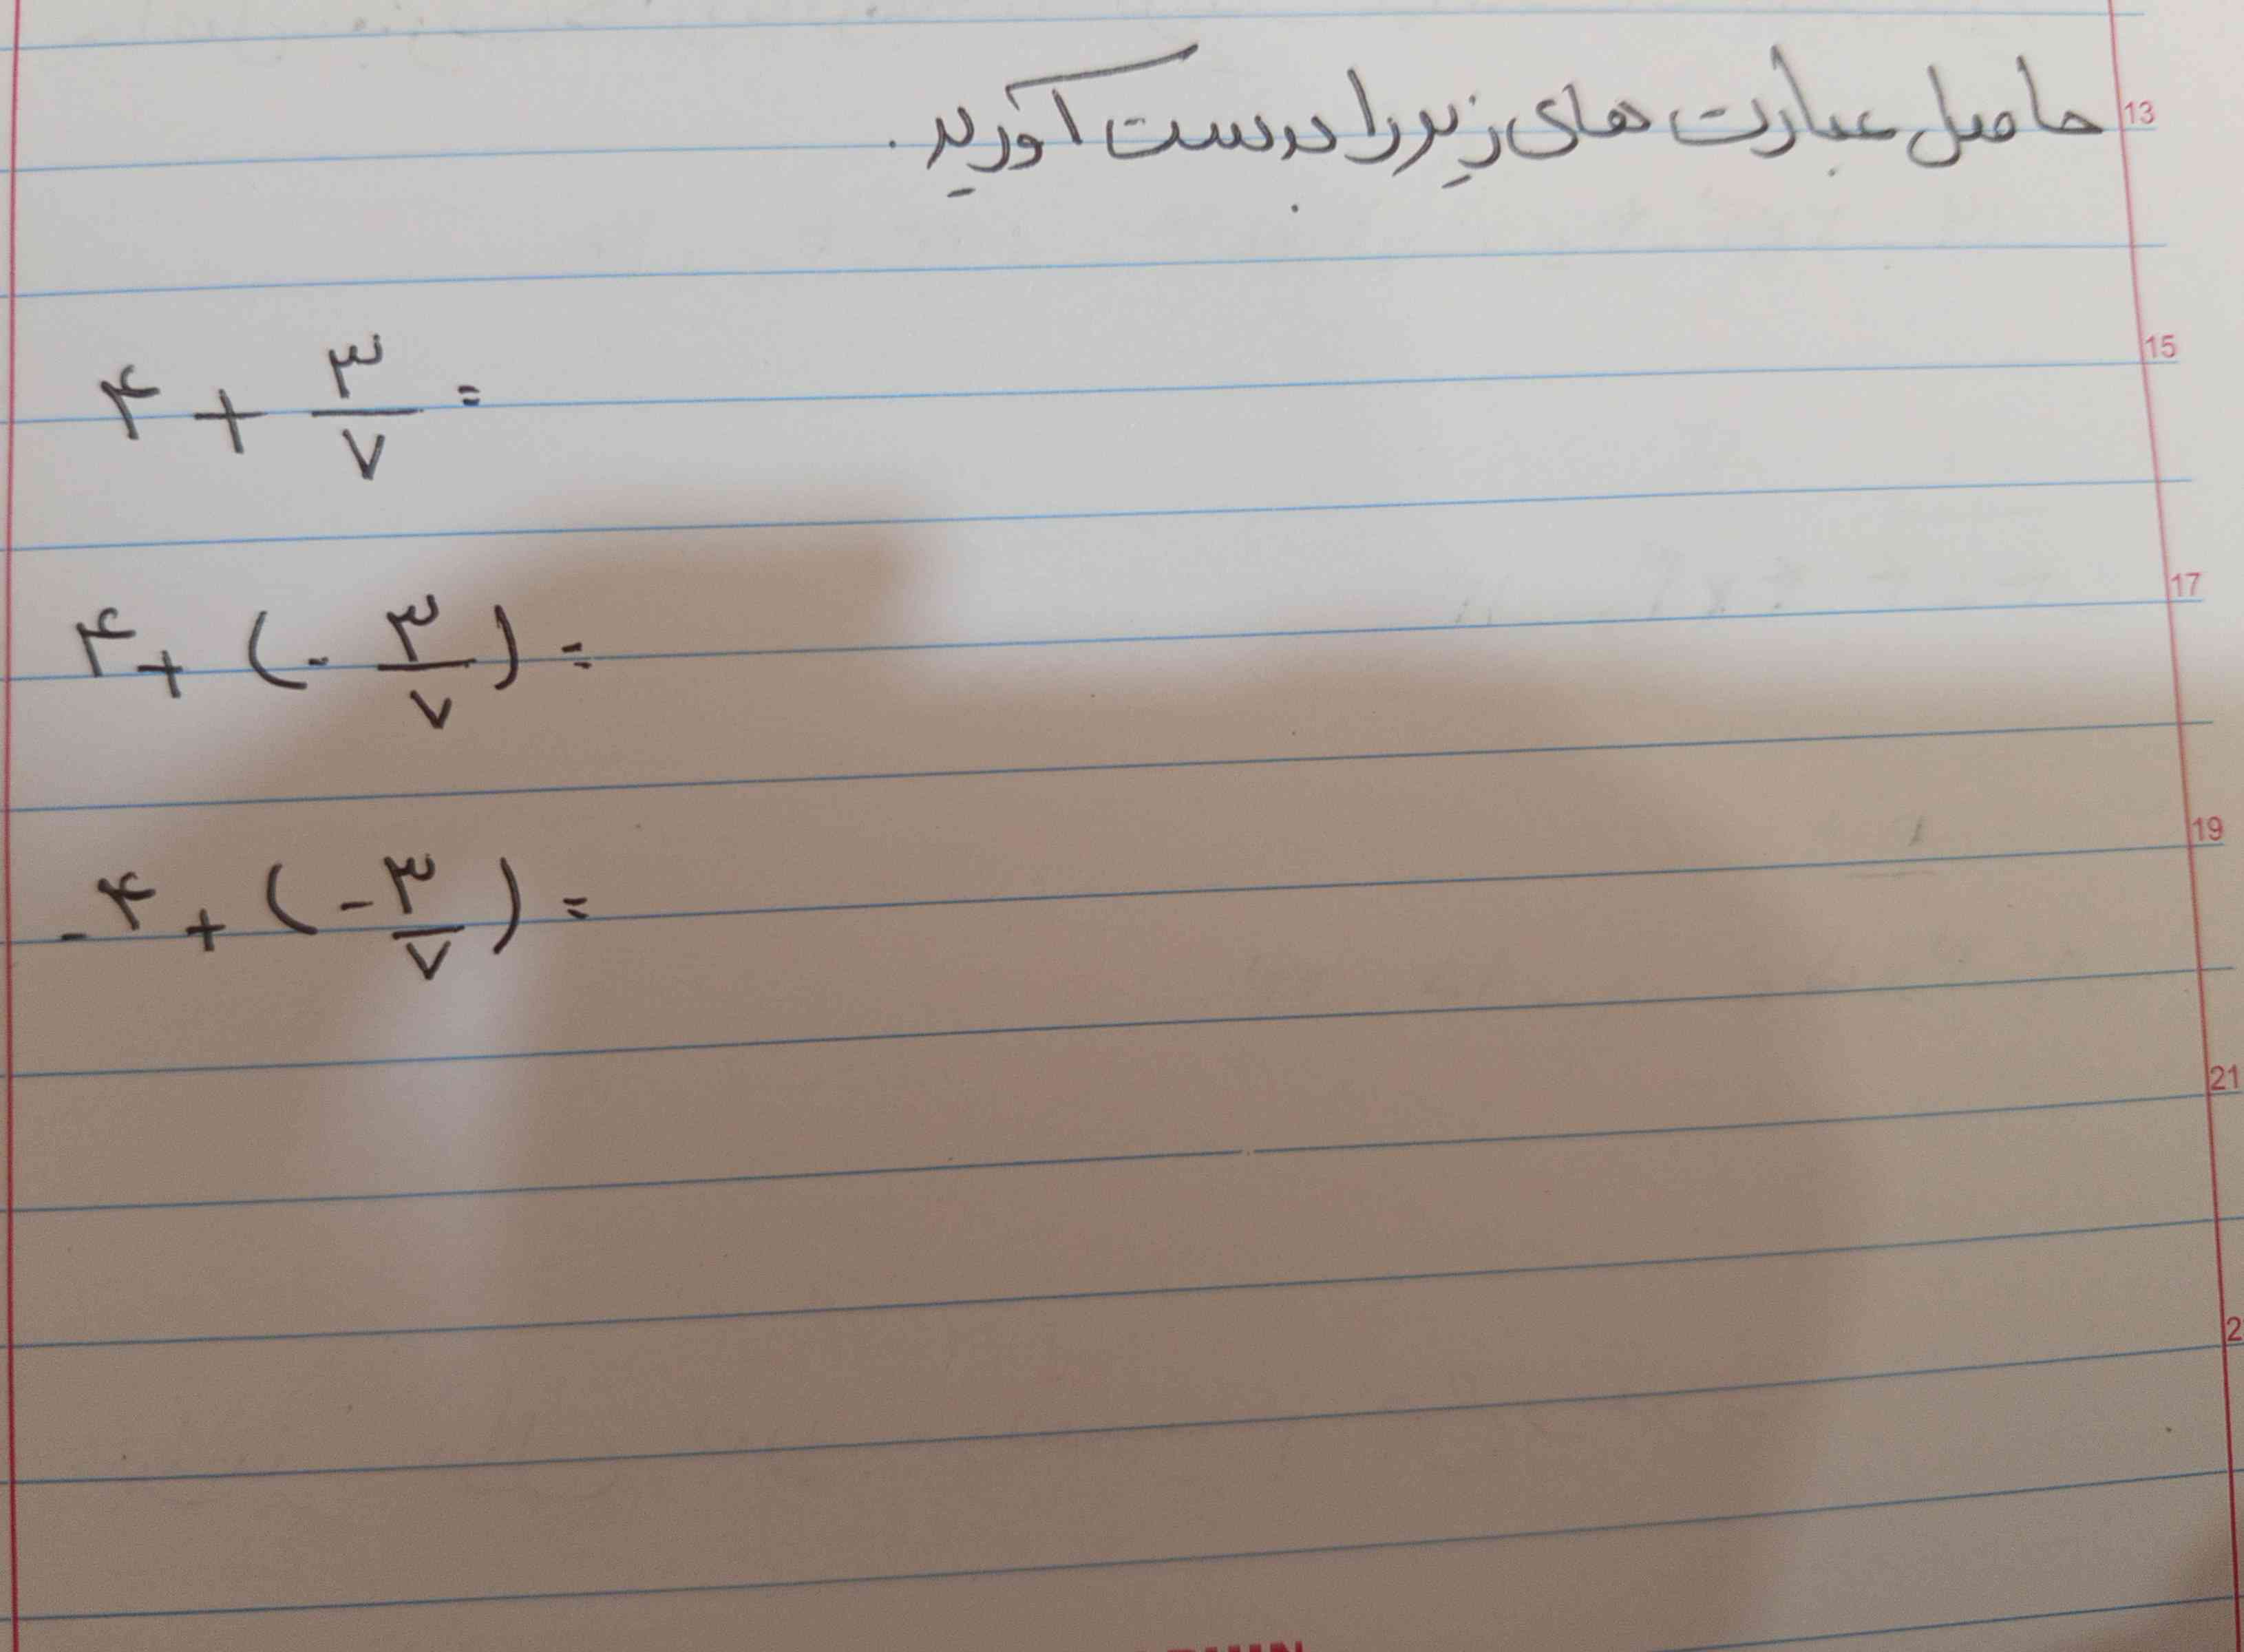 حاصل عبارت های زیر را بدست آورید.
13
15
۴ + ۳/۷ =
17
۴ + (- ۳/۷) =
19
-۴ + (-۳/۷) =
21
2